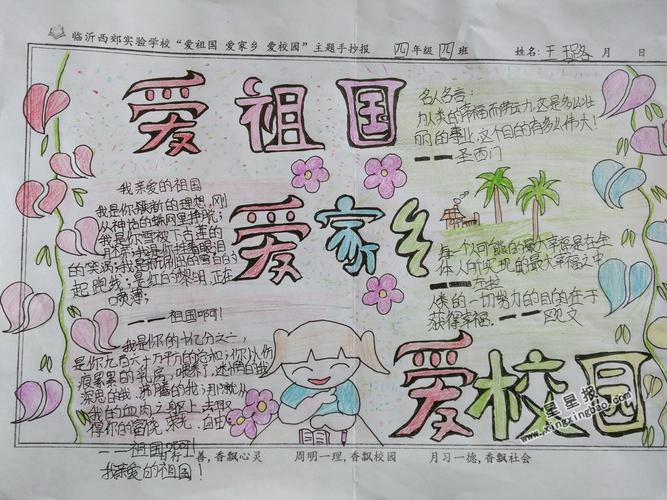 临沂西郊实验学校“爱祖国 爱家乡 爱校园”主题手抄报 四年级四班 姓名: 王璐 月 日
爱祖国
名人名言:
力人类的幸福而劳动,这是多么壮
丽的事业,这个目的有多么伟大!
———圣西门
我亲爱的祖国
我是你簇新的理想,刚
从神话的蛛网里挣脱;
我是你雪被下古莲的
胚芽;我是你挂着眼泪
的笑涡;我是新刷出的雪白的
起跑线;是绯红的黎明,正在
喷薄;
———祖国啊!
爱家乡
每一个人可能的最大幸福是在全
体人所实现的最大幸福之中
———左拉
人类的一切努力的目的在于
获得幸福。———欧文
我是你的十亿分之一,
是你九百六十万平方的总和;你以伤
痕累累的乳房,喂养了,迷惘的我
深思的我、沸腾的我;那就从
我的血肉之躯上,去取
得你的富饶、荣光、自由
——祖国啊!
我亲爱的祖国!
爱校园
日行一善,香飘心灵 周明一理,香飘校园 月习一德,香飘社会
星星报
www.xingxingbao.com